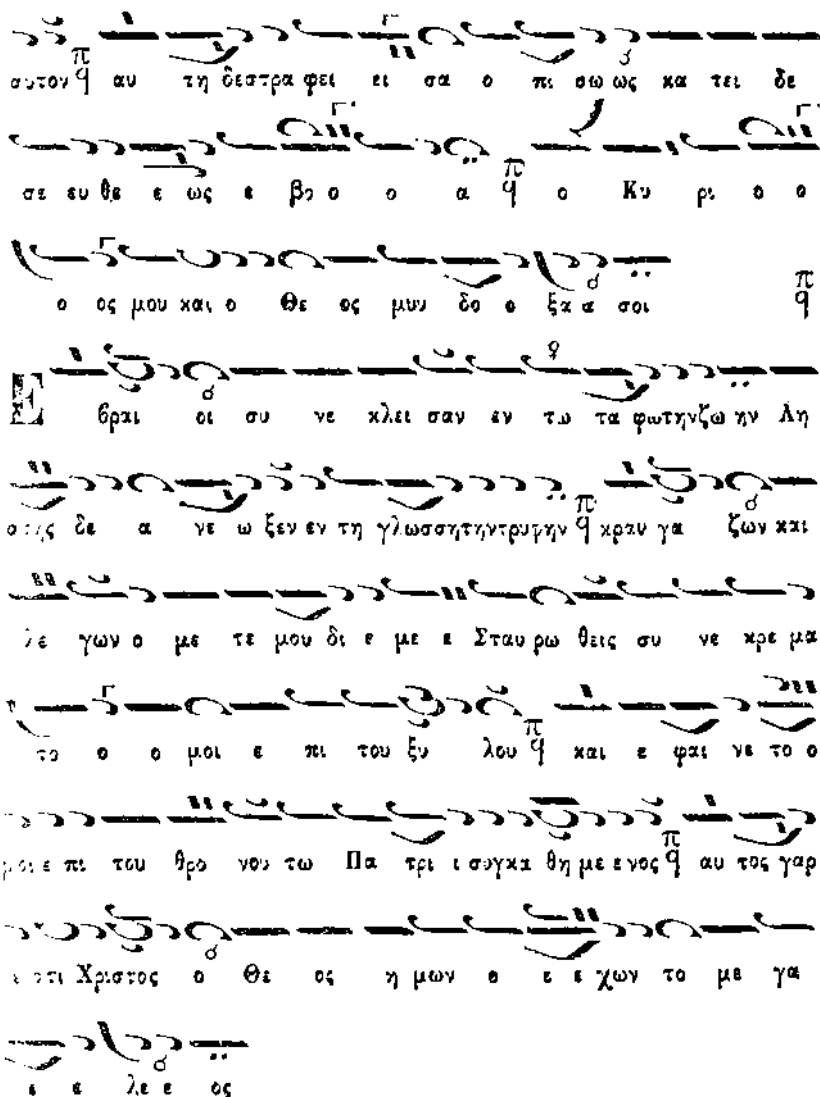 αυτον π̈ q αυ τη δε στρα φει ει σα ο πι σω ως κα τει δε
σε ευ θε ε ως ε βο ο ο α π̈ q ο Κυ ρι ο ο
ο ος μου και ο Θε ος μου δο ο ξα α σοι π̈ q
βραι οι συ νε κλει σαν εν τω τα φω την ζω ην Λη
δε α νε ω ξεν εν τη γλωσ ση την τρυ φην π̈ q κραυ γα ζων και
λε γων ο με τε μου δι ε με ε Σταυ ρω θεις συ νε κρε μα
το ο ο μοι ε πι του ξυ λου π̈ q και ε φαι νε το ο
μοι ε πι του θρο νου τω Πα τρι ι συγ κα θη με ε νος π̈ q αυ τος γαρ
ε στι Χρι στος ο Θε ος η μων ο ε ε χων το με γα
ε ε λε ε ος